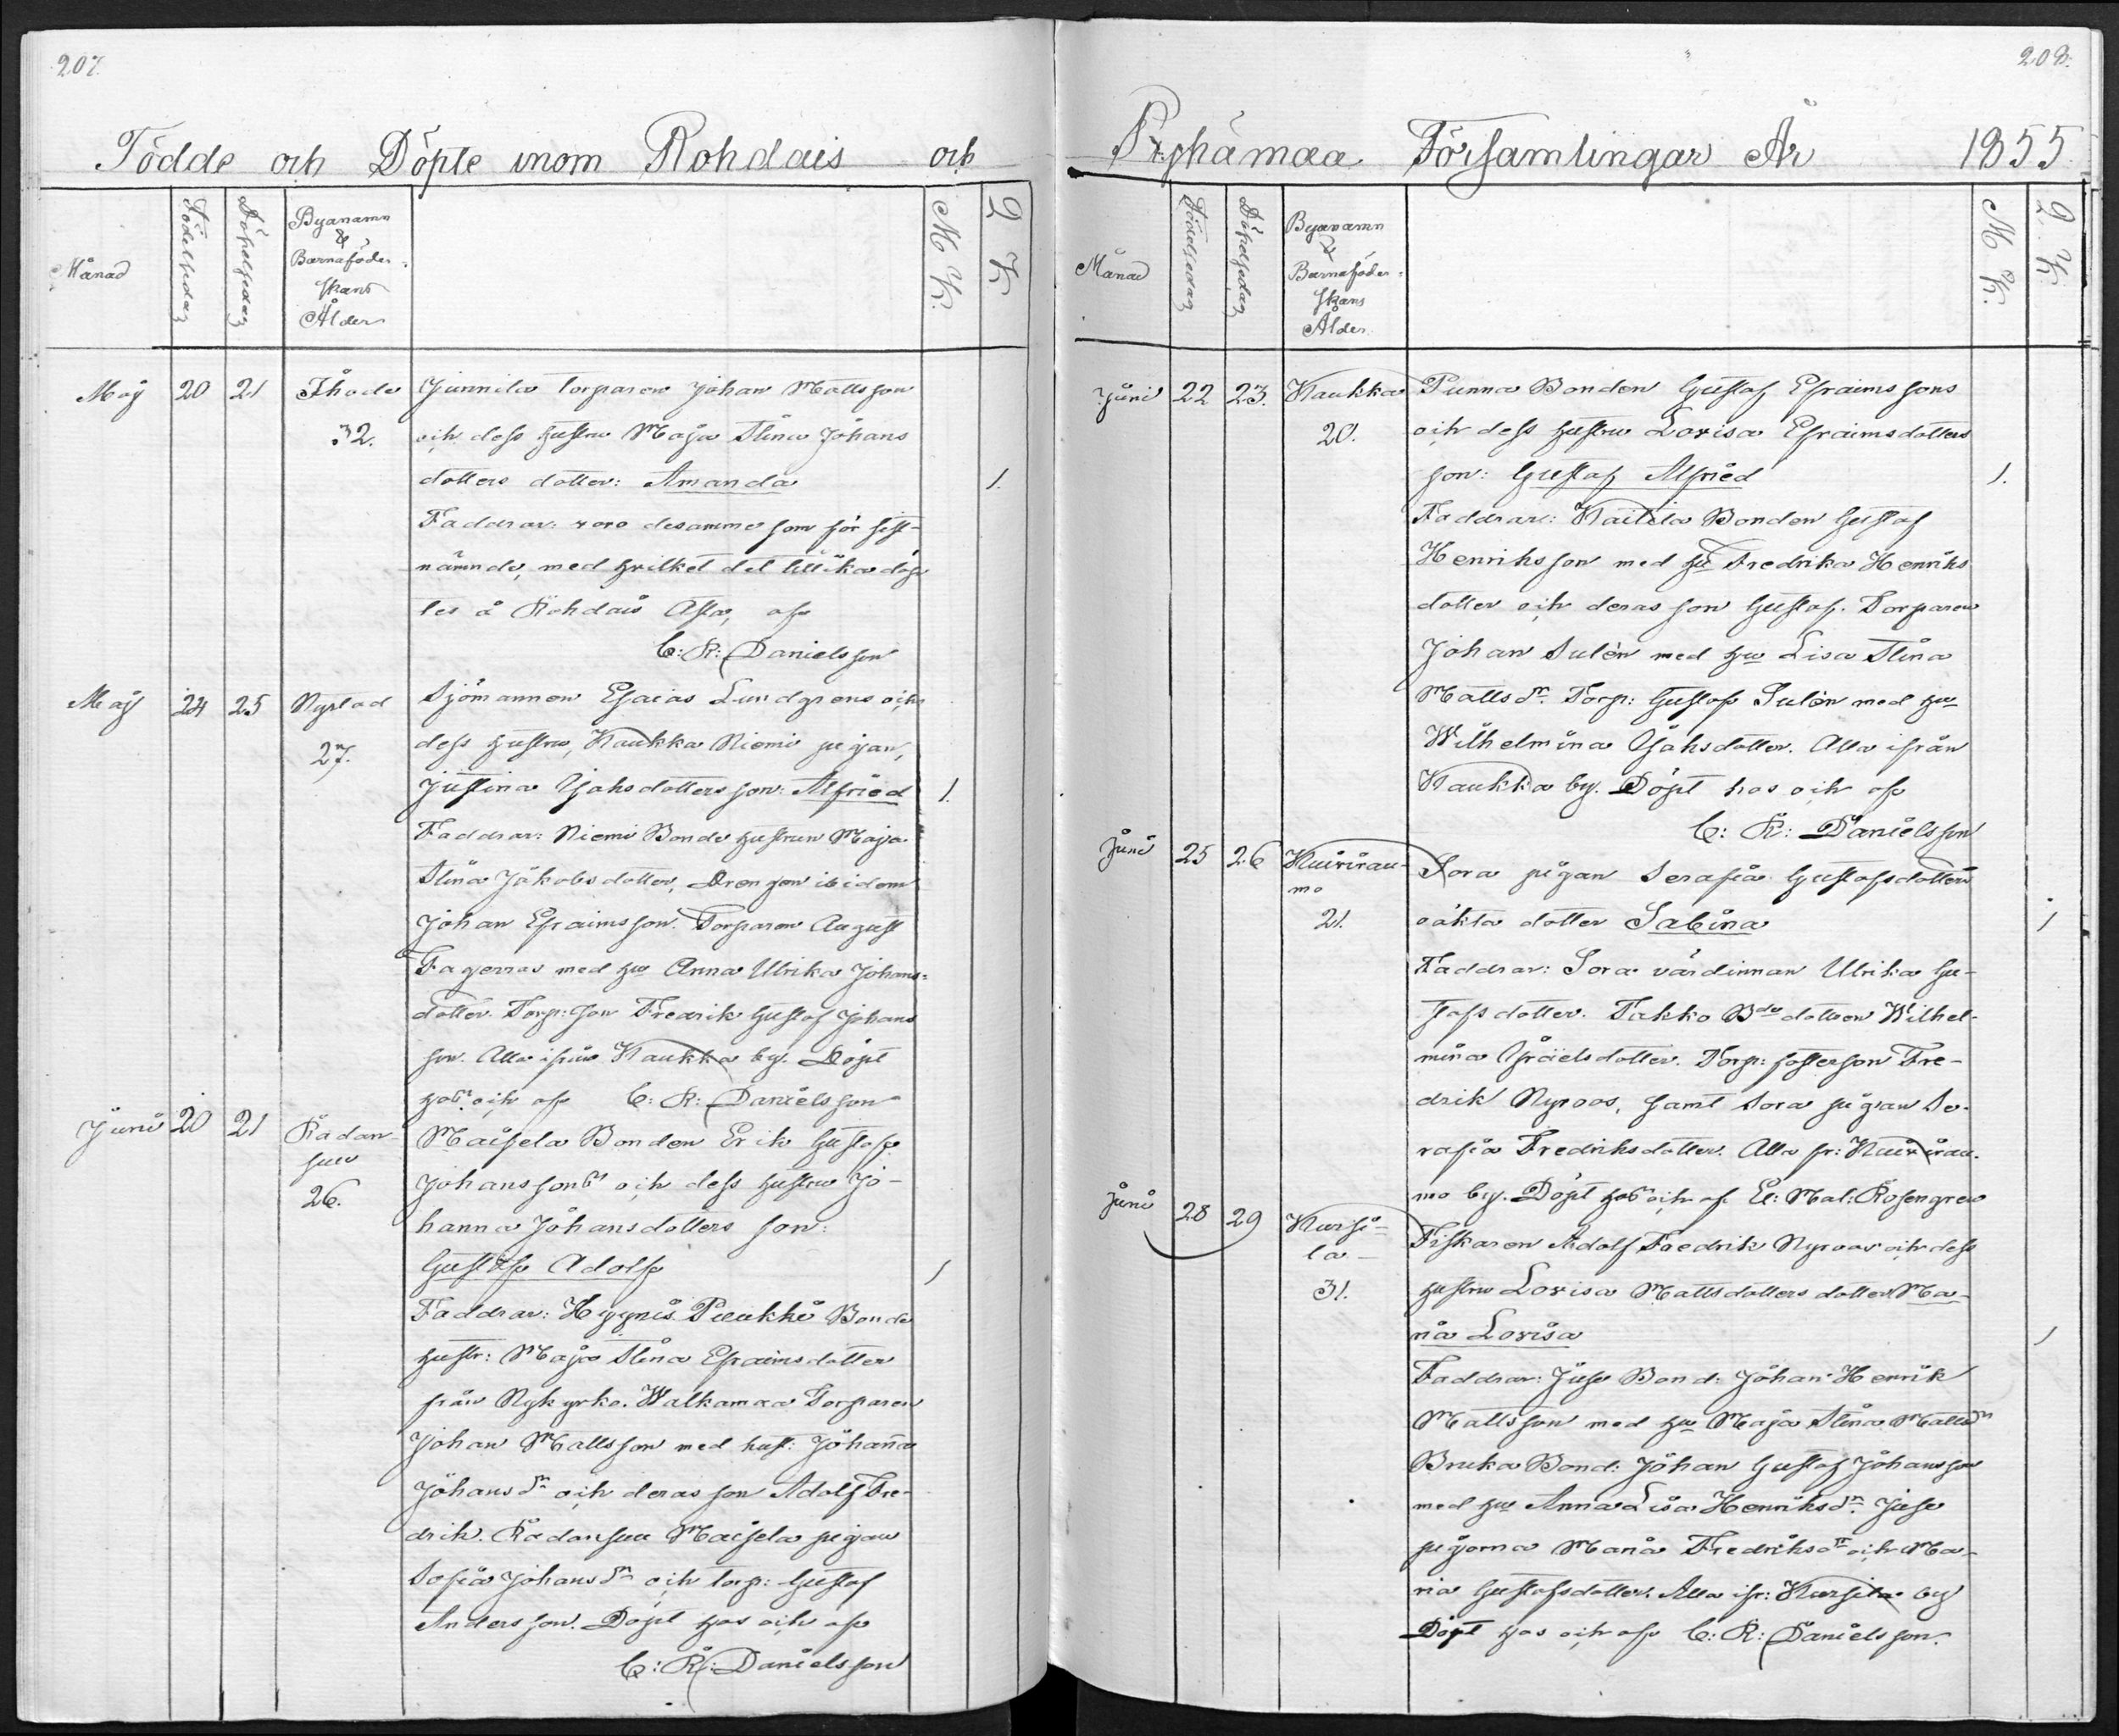 207.
Födde och Döpte inom Rohdais och
Månad
Födelsedag
Döpelsedag
Byanamn
&
Barnaföder-
skans
Ålder
M K.
Q K
Maj 20 21 Ihode Junnila torparen Johan Mattsson
32. och dess hustru Maja Stina Johans
dotters dotter: Amanda 1.
Faddrar: voro desamme som för sist-
nämnde, med hvilket det tillika döp
tes å Rohdais
af
C: R: Danielsson
Maj 24 25 Nystad Sjömannen Esaias Lundgrens och
27. dess hustru, Kaukka Niemi pigan,
Justina Isaksdotters son: Alfried 1.
Faddrar: Niemi Bonde hustrun Maja
Stina Jakobsdotter, Drengen ibidem
Johan Efraimsson. Torparen August
Fagerras med hu Anna Ulrika Johans-
dotter. Torp: son Fredrik Gustaf Johans
son. Alla ifrån Kaukka by. Döpt
hos och af C: R: Danielsson
Juni 20 21 Radan- Maisela Bonden Erik Gustaf
suu Johanssons och dess hustru Jo-
26. hanna Johansdotters son:
Gustaf Adolf 1
Faddrar: Hyynis Puukki Bonde
hustr: Maja Stina Efraimsdotter
från Nykyrko. Walkamaa Torparen
Johan Mattsson med hust: Johanna
Johansdr och deras son Adolf Fre-
drik. Radansuu Maisela pigan
Sofia Johansdr och torp: Gustaf
Andersson. Döpt hos och af
C: R: Danielsson
208.
Pyhämaa Församlingar År 1855
Månad
Födelsedag
Döpelsedag
Byanamn
&
Barnaföder-
skans
Ålder
M K.
Q. K.
Juni 22 23. Kaukka Punna Bonden Gustaf Efraimssons
20. och dess hustru Lovisa Efraimsdotters
son: Gustaf Alfried 1.
Faddrar: Kaitila Bonden Gustaf
Henriksson med hu Fredrika Henriks
dotter och deras son Gustaf. Torparen
Johan Sulén med hu Lisa Stina
Mattsdr. Torp: Gustaf Sulén med hu
Wilhelmina Isaksdotter. Alla ifrån
Kaukka by. Döpt hos och af
C: R: Danielsson
Juni 25 26 Kuivirau- Sora pigan Serafia Gustafsdotters
mo
21. oäkta dotter Sabina 1
Faddrar: Sora värdinnan Ulrika Gu-
stafsdotter. Takko Bde dottren Wilhel-
mina Israelsdotter. Torp: fosterson Fre-
drik Nyroos, samt Sora pigan Se-
rafia Fredriksdotter. Alla fr: Kuivirau-
mo by. Döpt hos och af El: Mat: Rosengren
Juni 28 29 Kursi- Fiskaren Adolf Fredrik Nyroos och dess
la
31. hustru Lovisa Mattsdotters dotter Ma-
ria Lovisa 1
Faddrar: Juse Bond: Johan Henrik
Mattsson med hu Maja Stina Mattsdr
Bruka Bond: Johan Gustaf Johansson
med hu Anna Lisa Henriksdr. Juse
pigorna Maria Fredriksdr och Ma-
ria Gustafsdotter. Alla ifr: Kursila by
Döpt hos och af C: R: Danielsson.